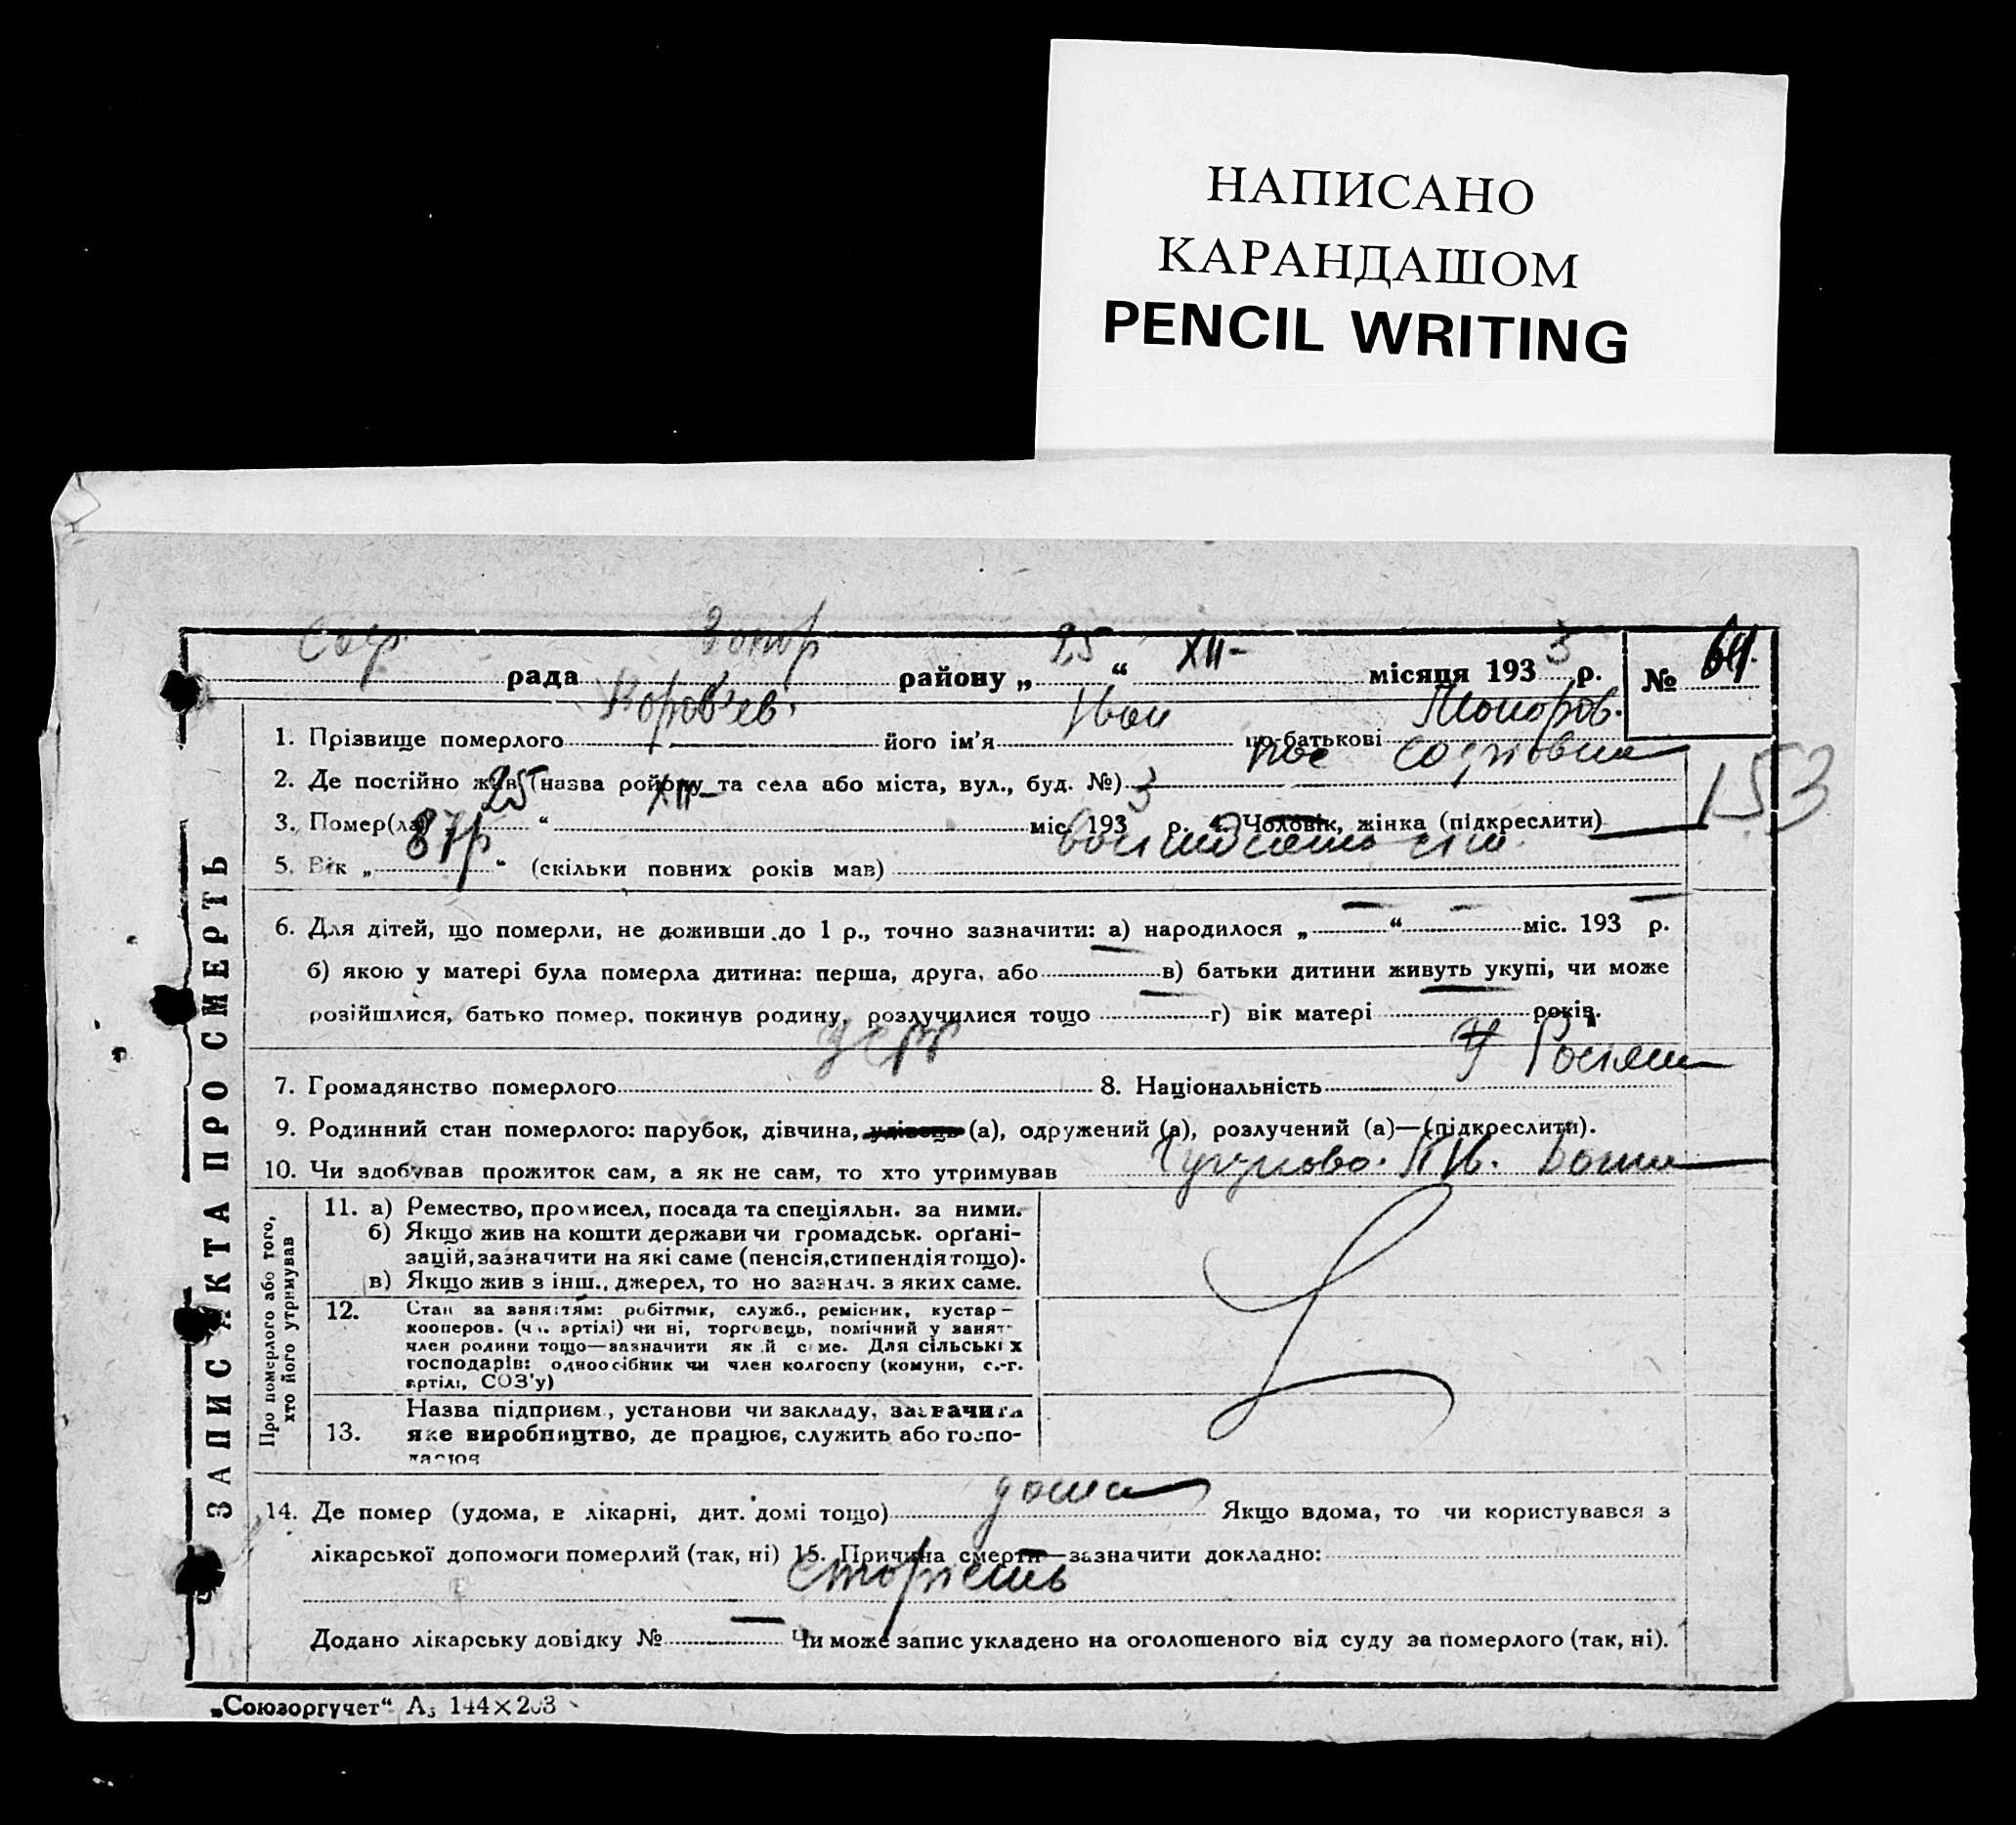 НАПИСАНО
КАРАНДАШОМ
PENCIL WRITING
ЗАПИС АКТА ПРО СМЕРТЬ
рада Запор району „ 25 “ XII- місяця 193 3 р. №
1. Прізвище померлого Воров'ев. його ім'я Іван по-батькові
2. Де постійно жив (назва ройону та села або міста, вул., буд. №)
3. Помер(ла) 25 “ XII- міс. 193 3 р. 4. Чоловік, жінка (підкреслити)
153
5. Вік „ 87р “ (скільки повних років мав) вісімдесять сім.
6. Для дітей, що померли, не доживши до 1 р., точно зазначити: а) народилося „ — “ — міс. 193 р.
б) якою у матері була померла дитина: перша, друга, або — в) батьки дитини живуть укупі, чи може
розійшлися, батько помер, покинув родину, розлучилися тощо — г) вік матері — років.
7. Громадянство померлого УСРР 8. Національність
9. Родинний стан померлого: парубок, дівчина, удівець (а), одружений (а), розлучений (а)—(підкреслити).
10. Чи здобував прожиток сам, а як не сам, то хто утримував
Про померлого або того,
хто його утримував
11. а) Ремество, промисел, посада та спеціяльн. за ними.
б) Якщо жив на кошти держави чи громадськ. орґані-
зацій, зазначити на які саме (пенсія, стипендія тощо).
в) Якщо жив з інш., джерел, то но зазнач. з яких саме.
12. Стан за заняттям: робітник, служб., ремісник, кустар—
кооперов. (чл. артілі) чи ні, торговець, помічний у занят-
член родини тощо—зазначити як й саме. Для сільських
господарів: одноосібник чи член колгоспу (комуни, с.-г.
артілі, СОЗ'у)
13. Назва підприєм., установи чи закладу, зазначити
яке виробництво, де працює, служить або госпо-
дарює
14. Де помер (удома, в лікарні, дит. домі тощо) дома Якщо вдома, то чи користувався з
лікарської допомоги померлий (так, ні) 15. Причина смерти—зазначити докладно:
старість
Додано лікарську довідку № — Чи може запис укладено на оголошеного від суду за померлого (так, ні).
„Союзоргучет“ А5 144×203